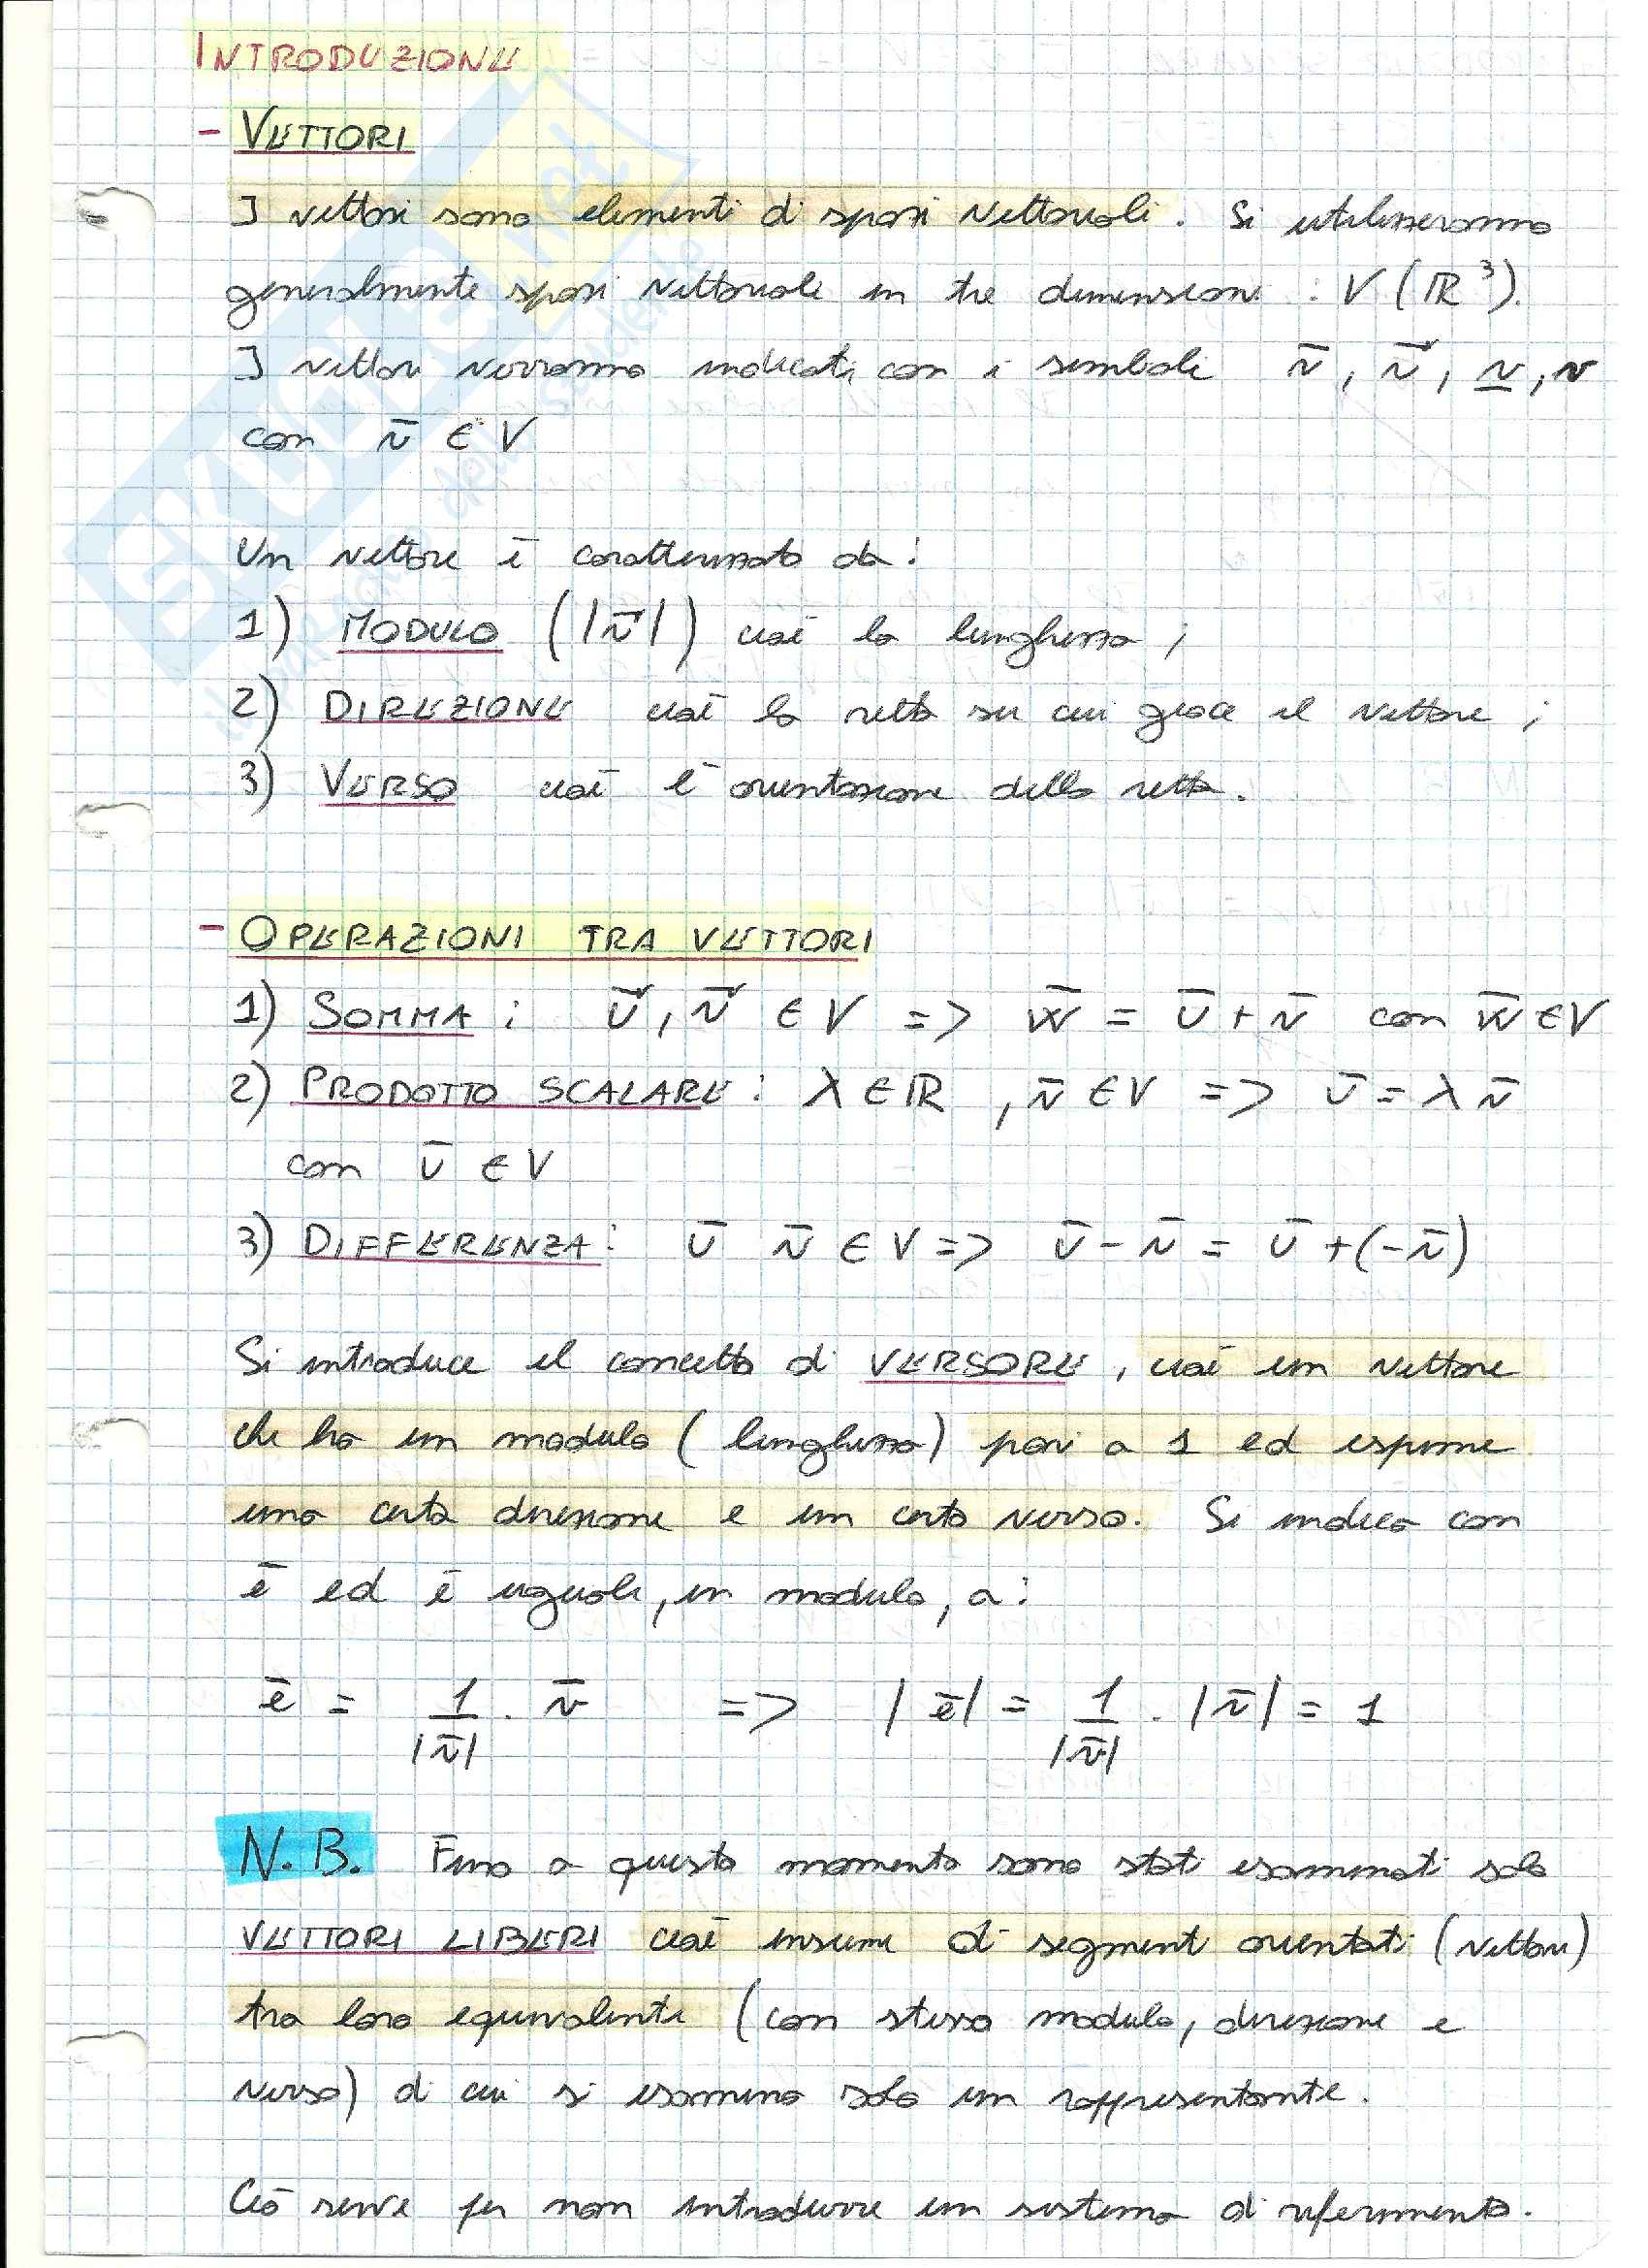 INTRODUZIONE
- VETTORI
I vettori sono elementi di spazi vettoriali. Si utilizzeranno
generalmente spazi vettoriali in tre dimensioni : V (ℝ³).
I vettori verranno indicati con i simboli v̄, v⃗, v̲, v
con v̄ ∈ V
Un vettore è caratterizzato da:
1) MODULO (|v⃗|) cioè la lunghezza;
2) DIREZIONE cioè la retta su cui giace il vettore;
3) VERSO cioè l'orientazione della retta.
- OPERAZIONI TRA VETTORI
1) SOMMA: u⃗, v⃗ ∈ V => w̄ = ū + v̄ con w̄ ∈ V
2) PRODOTTO SCALARE: λ ∈ ℝ, v̄ ∈ V => ū = λ v̄
con ū ∈ V
3) DIFFERENZA: ū v̄ ∈ V => ū - v̄ = ū + (-v̄)
Si introduce il concetto di VERSORE, cioè un vettore
che ha un modulo (lunghezza) pari a 1 ed esprime
una certa direzione e un certo verso. Si indica con
ē ed è uguale, in modulo, a:
ē = 1/|v̄| · v̄ => |ē| = 1/|v̄| · |v̄| = 1
N.B. Fino a questo momento sono stati esaminati solo
VETTORI LIBERI cioè insiemi di segmenti orientati (vettori)
tra loro equivalenti (con stesso modulo, direzione e
verso) di cui si esamina solo un rappresentante.
Ciò serve per non introdurre un sistema di riferimento.